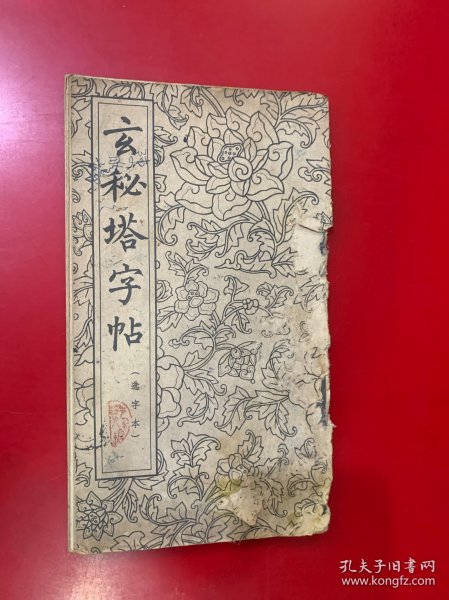 玄秘塔字帖
（选字本）
孔夫子旧书网
www.kongfz.com